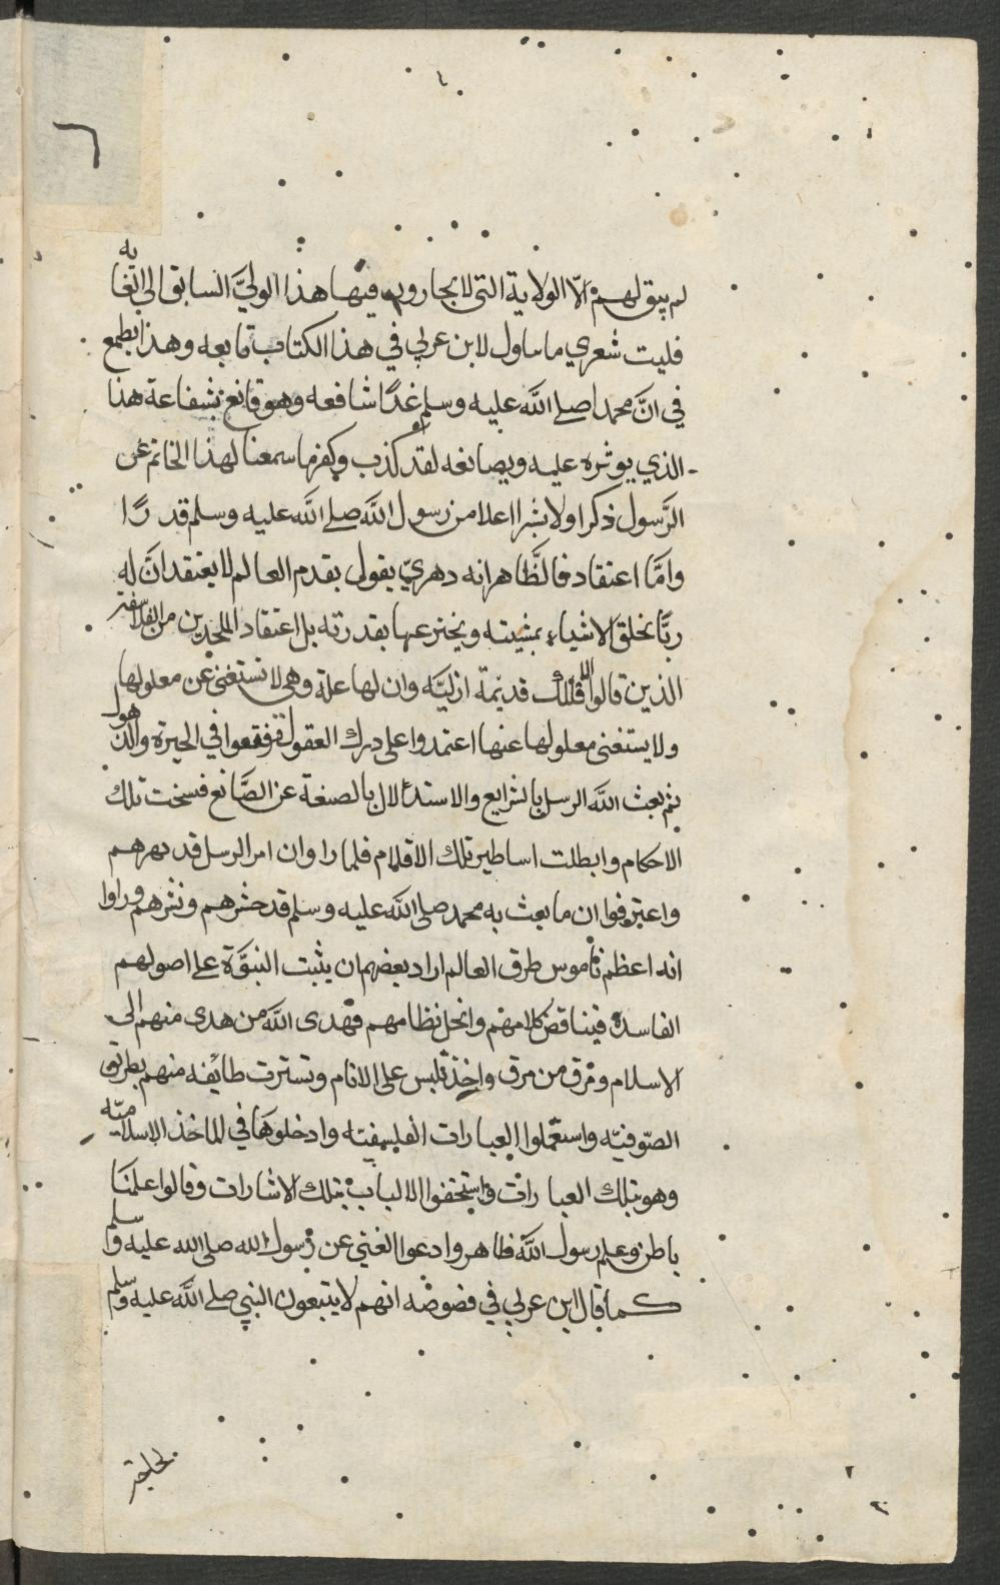 ٦
لم يبق لهم الّا الولاية التي لا يجارونه فيها هذا الوليّ السابق الى الغايه
فليت شعري ما ساول لابن عربي في هذا الكتاب تابعه وهذا يطمع
في انّ محمدا صلى الله عليه وسلم غدًا شافعه وهو قانع بشفاعة هذا
الذي يوثره عليه ويصانعه لقد كذب وكفر ما سمعنا لهذا الخاتم عن
الرّسول ذكرا ولا بشرا اعلا من رسول الله صلى الله عليه وسلم قدرًا
وامّا اعتقاد فالظّاهر انه دهريّ يقول بقدم العالم لا يعتقد انّ له
ربًّا يخلق الاشياء بمشيته ويخترعها بقدرته بل اعتقاد الملحدين من الفلاسفة
الذين قالوا الفلك قديمة ازليّه وان لها علة وهي لا تستغني عن معلولها
ولا يستغني معلولها عنها اعتمدوا على درك العقول فوقعوا في الحيرة والذهول
ثم بعث الله الرسل بالشرايع والاستدلال بالصنعة عن الصّانع فنسخت تلك
الاحكام وابطلت اساطير تلك الاقلام فلما راوا ان امر الرسل قد بهرهم
واعترفوا ان ما بعث به محمد صلى الله عليه وسلم قد حشرهم ونشرهم وراوا
انه اعظم ناموس طرق العالم اراد بعضهم ان يثبت النبوّة على اصولهم
الفاسده فيناقض كلامهم وانحل نظامهم فهدى الله من هدى منهم الى
الاسلام ومرق من مرق واخذ تلبس على الانام وتسترت طايفه منهم بطريق
الصّوفيّه واستعملوا العبارات الفلسفيّه وادخلوها في المآخذ الاسلاميّه
وهو بتلك العبارات واستخفوا الالباب بتلك الاشارات وقالوا علمنا
باطن وعلم رسول الله ظاهر وادعوا الغني عن رسول الله صلى الله عليه وسلم
كما قال ابن عربي في فصوصه انهم لا يتبعون النبي صلى الله عليه وسلم